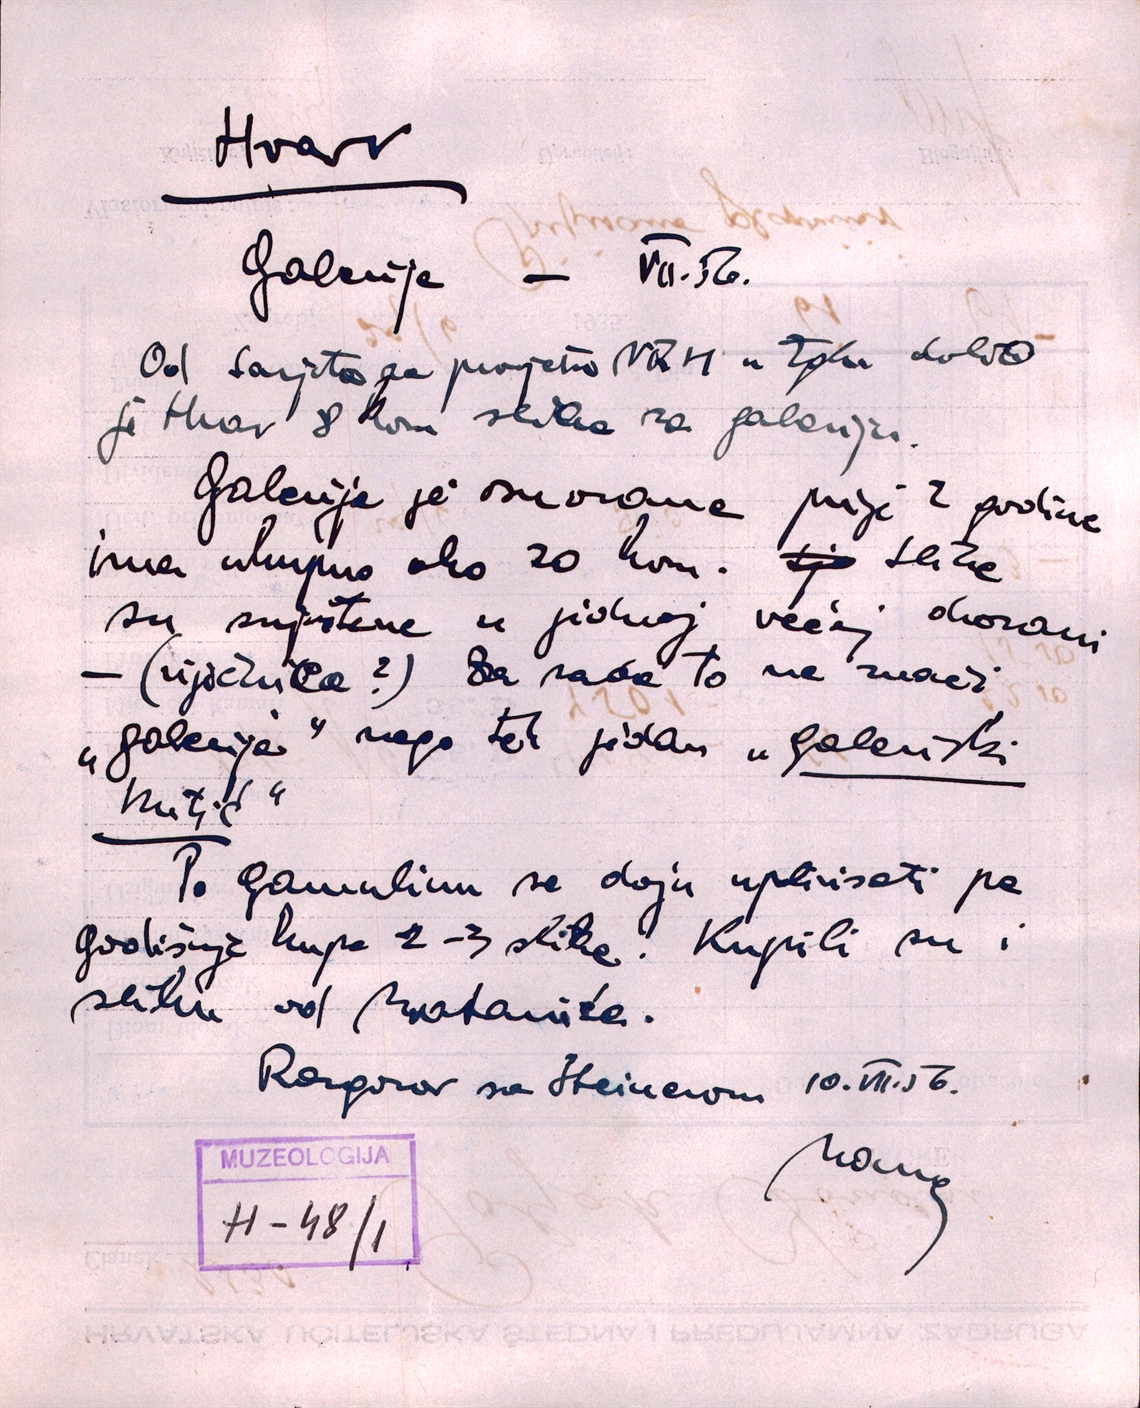 Hvar
Galerija – VII.56.
Od Savjeta za prosvjetu NRH u Zgbu dobio
je Hvar 8 kom slika za galeriju.
Galerija je osnovana prije 2 godine
ima ukupno oko 20 kom. Slike
su smještene u jednoj većoj dvorani
– (vijećnica?) Za sada to ne znači
„galerija“ nego tek jedan „galerijski
kutić“
Po Gamulinu se daju uplivisati pa
godišnje kupe 2–3 slike. Kupili su i
sliku od
Razgovor sa Steinerom 10.VII.56.
MUZEOLOGIJA
H-48/1
HRVATSKA UČITELJSKA ŠTEDNA I PREDUJAMNA ZADRUGA